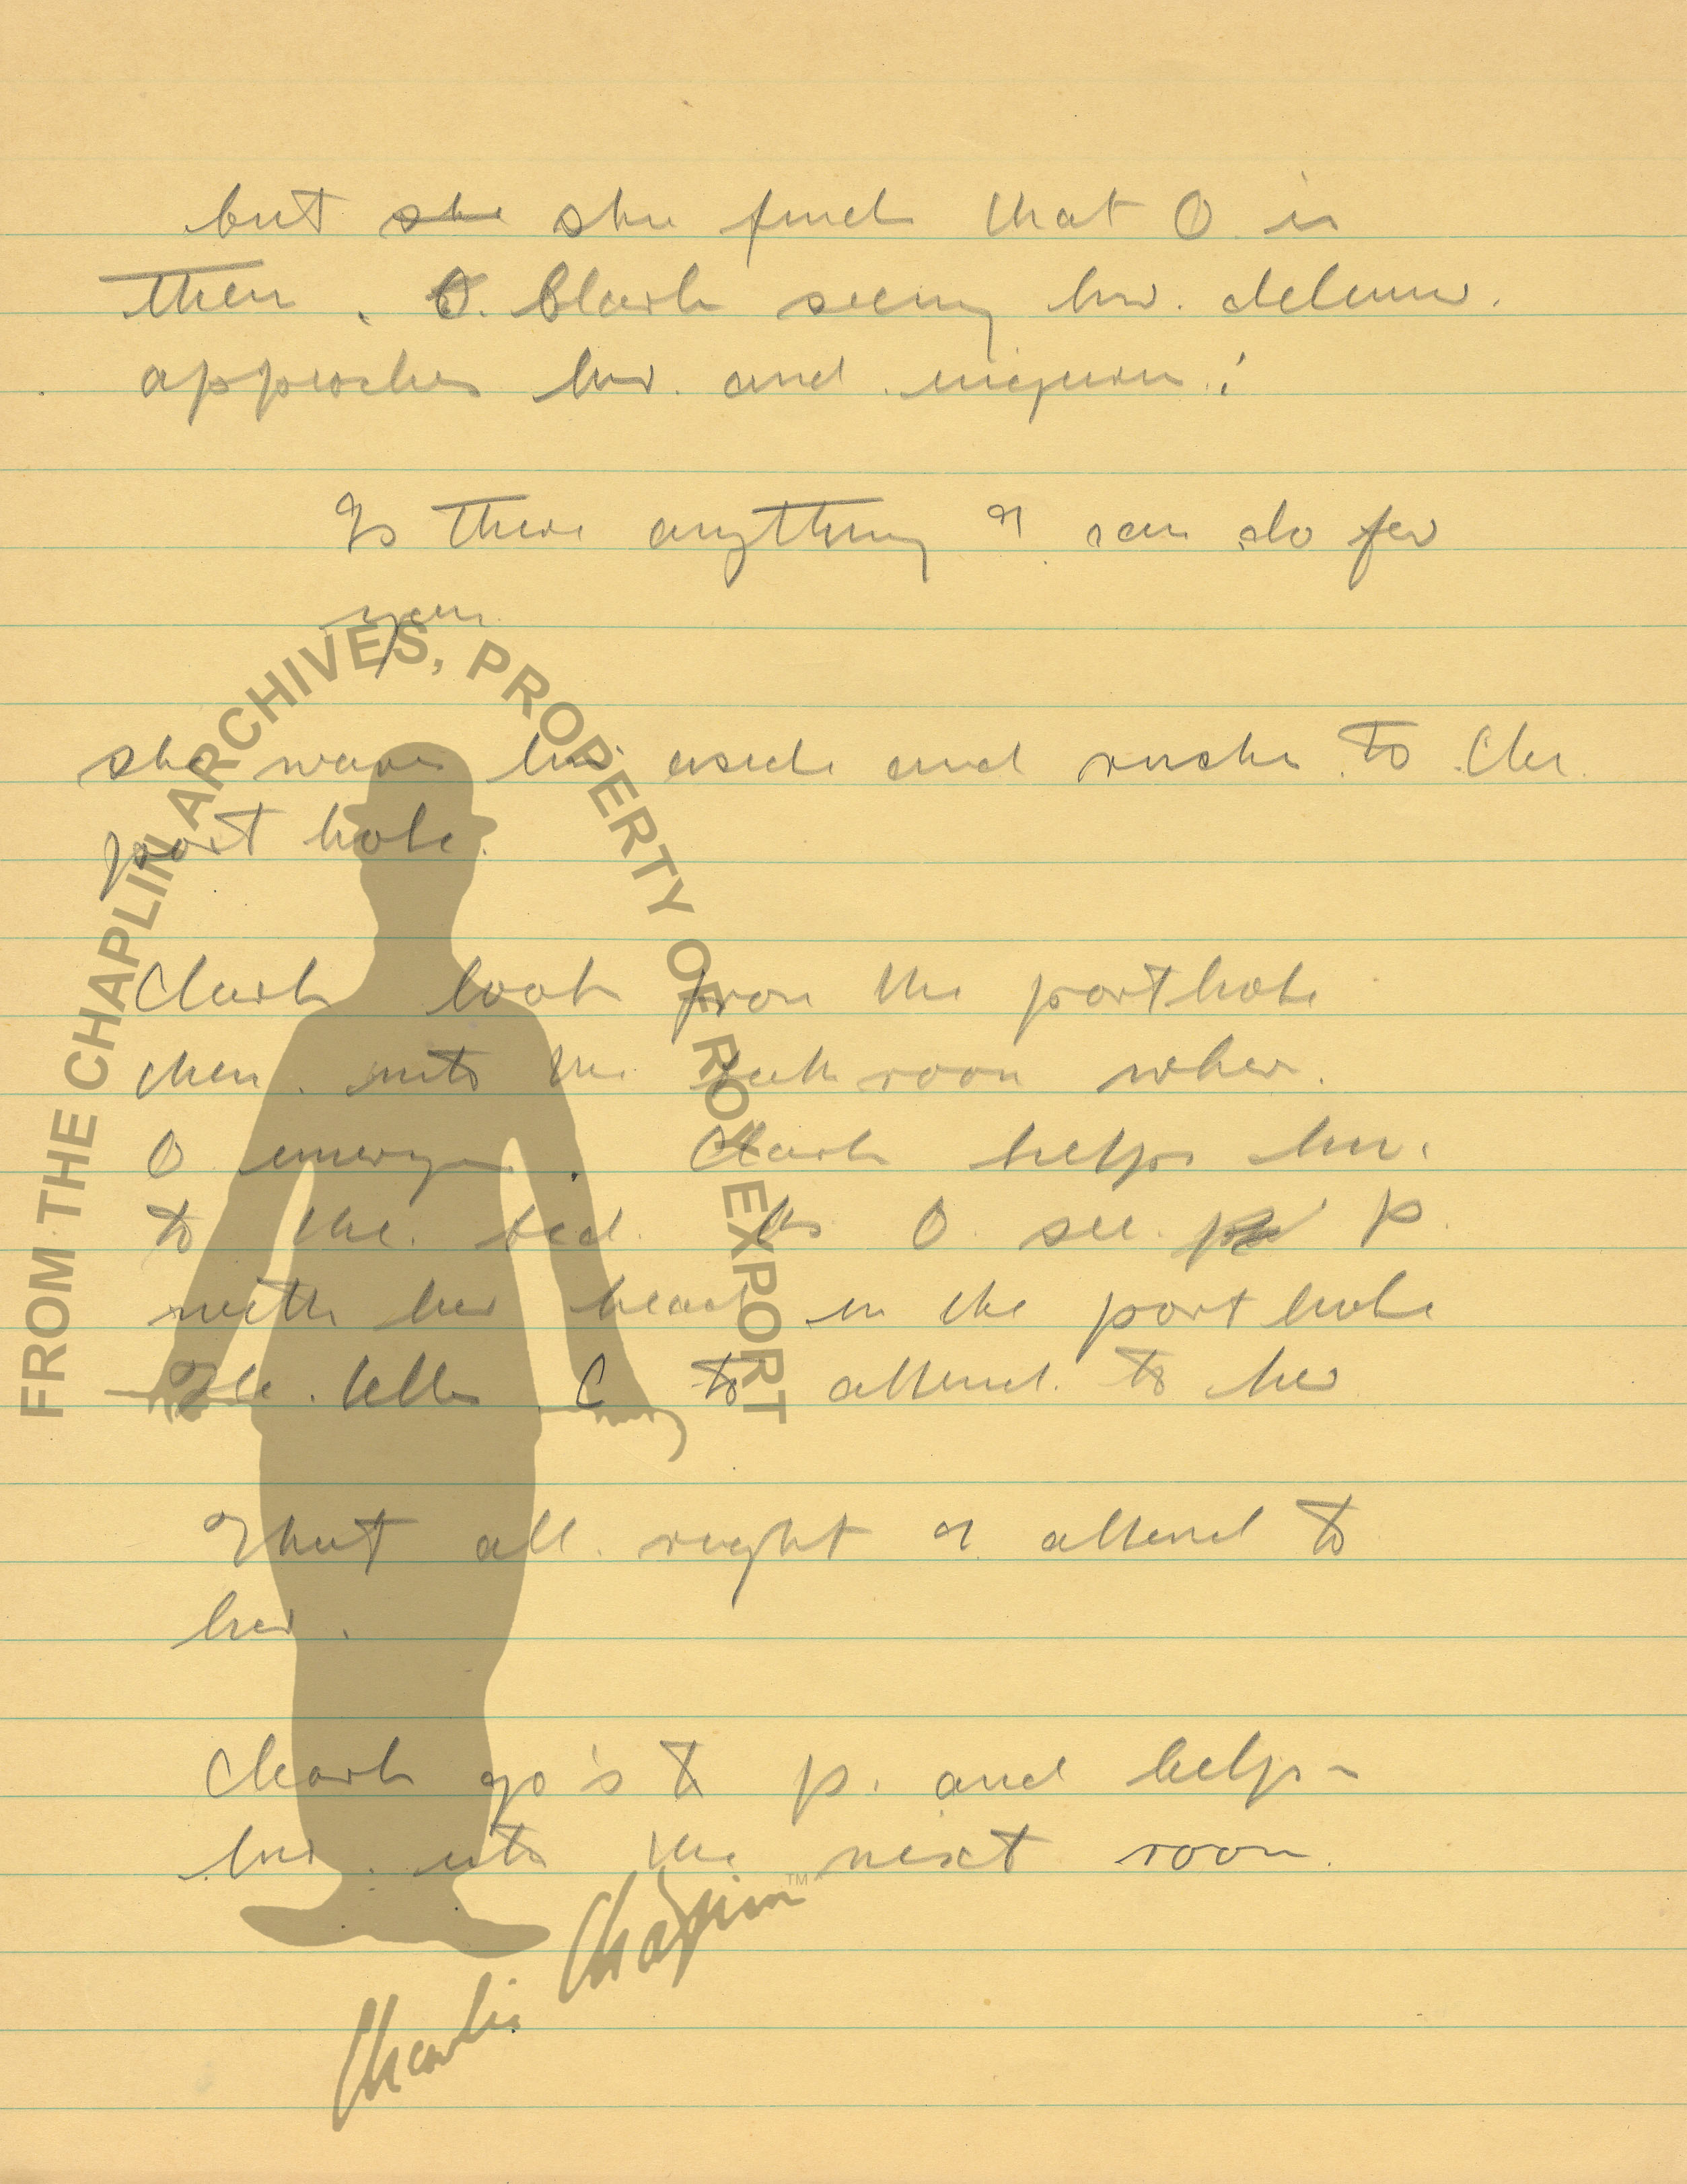 but she she finds that O. is
there. O. Clark seeing her dilemma.
approches her. and inquires:
Is there anything I can do for
you
she waves him aside and rushes to the
port hole.
Clark looks from the porthole
then into the bath room where.
O emerges. Clark helps him.
to the bed. As O see P.
with her head in the port hole
He tells C to attend to her
That all right I attend to
her.
Clark go's to p. and helps
her into the next room.
FROM THE CHAPLIN ARCHIVES, PROPERTY OF ROY EXPORT
Charlie Chaplin ™